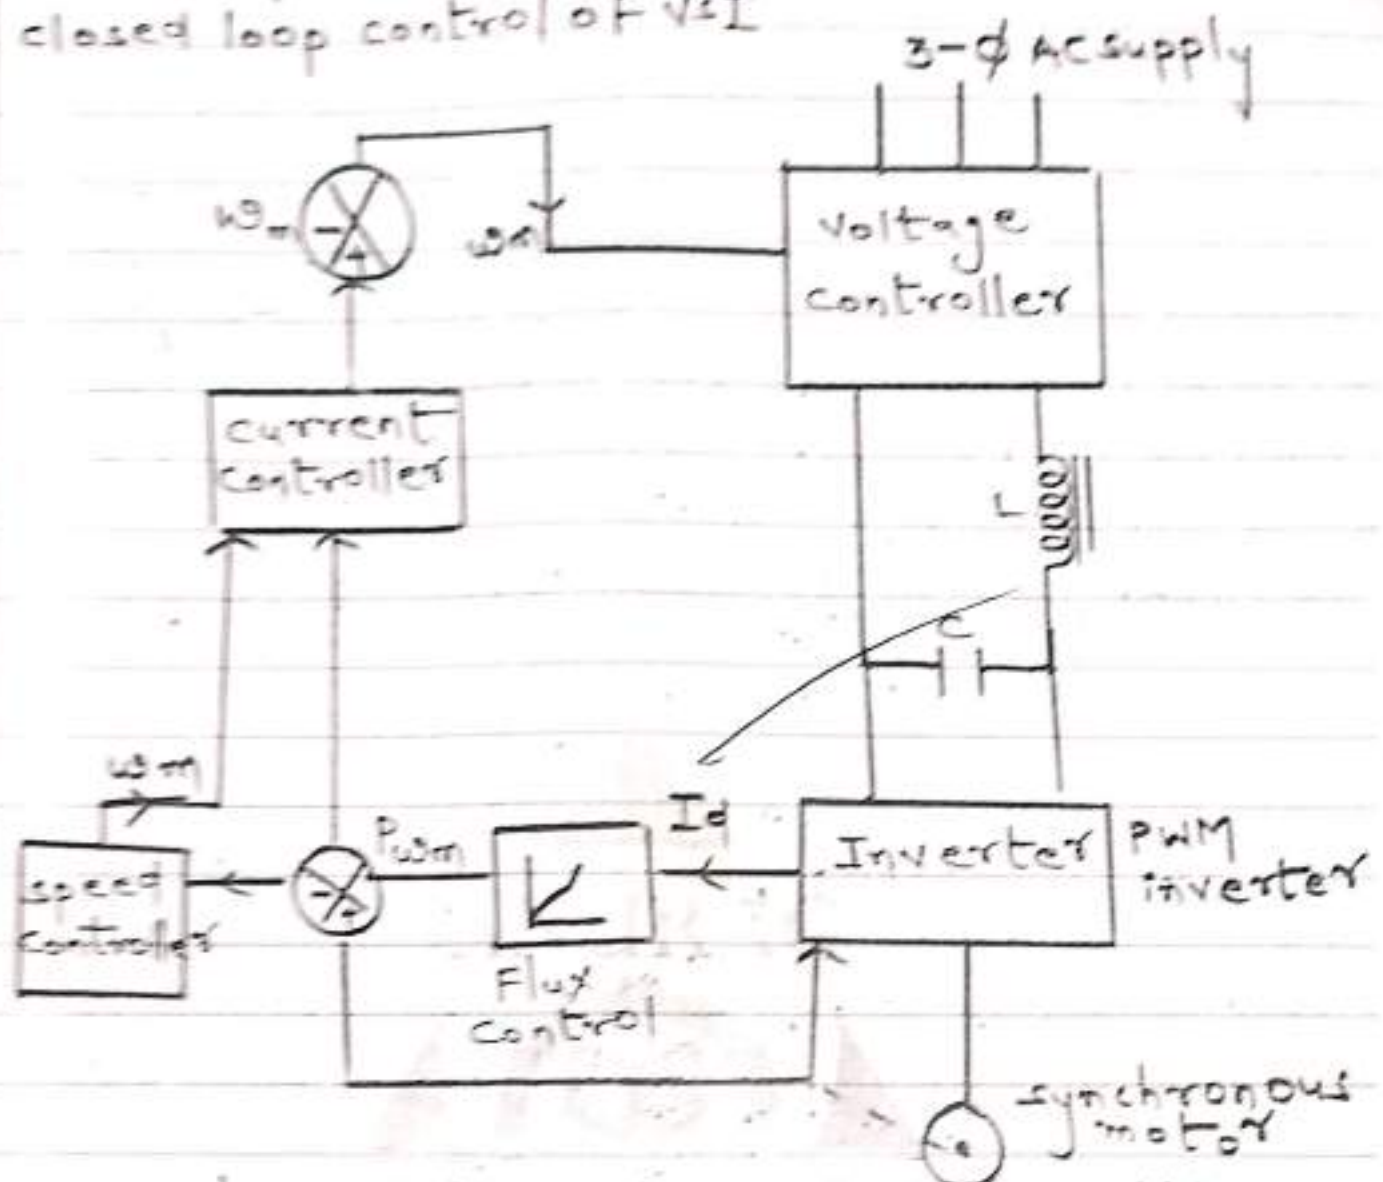 closed loop control of VSI
3-ϕ AC supply
ωm
-
+
ωm
voltage
controller
current
controller
L
C
ωm
speed
controller
-
+
Pωm
Id
Inverter
PWM
inverter
Flux
control
synchronous
motor